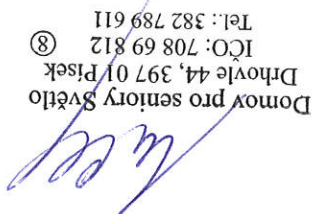 Domov pro seniory Světlo
Drhovle 44, 397 01 Písek
IČO: 708 69 812 8
Tel.: 382 789 611